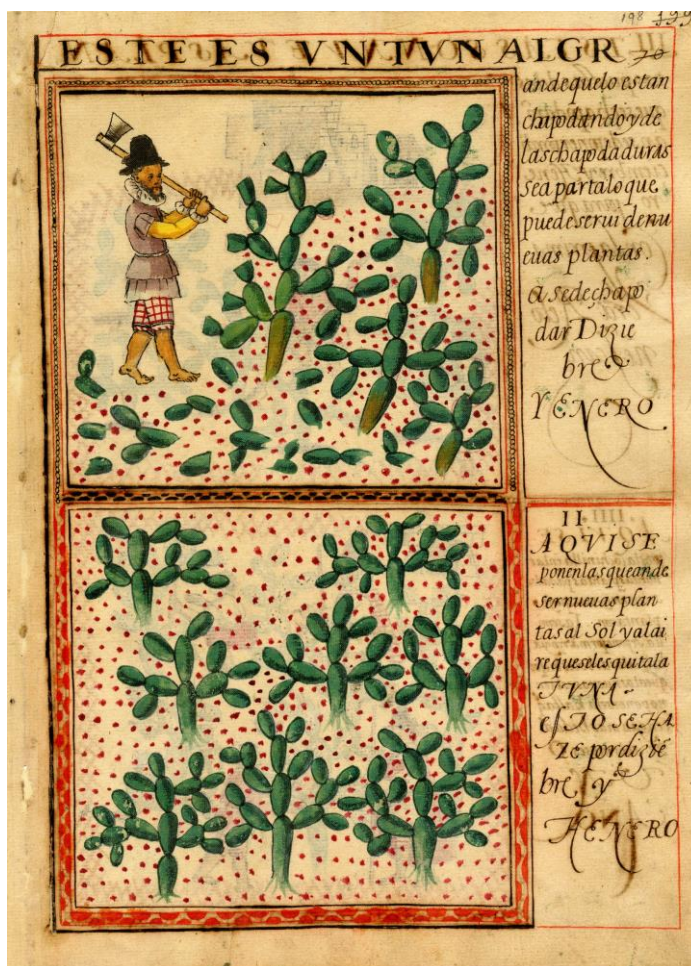 198 199
ESTE ES VN TVNAL GR 70
ande quelo estan
chapodando y de
las chapodaduras
sea parta lo que
puede serui de nu
euas plantas.
a se de chapo
dar Dizie
bre
YENERO
II
AQVI SE
ponen las que an de
ser nueuas plan
tas al Sol y al ai
re que se les quita la
TVNA.
esTO SE HA
ZE por dizié
bre, y
HENERO